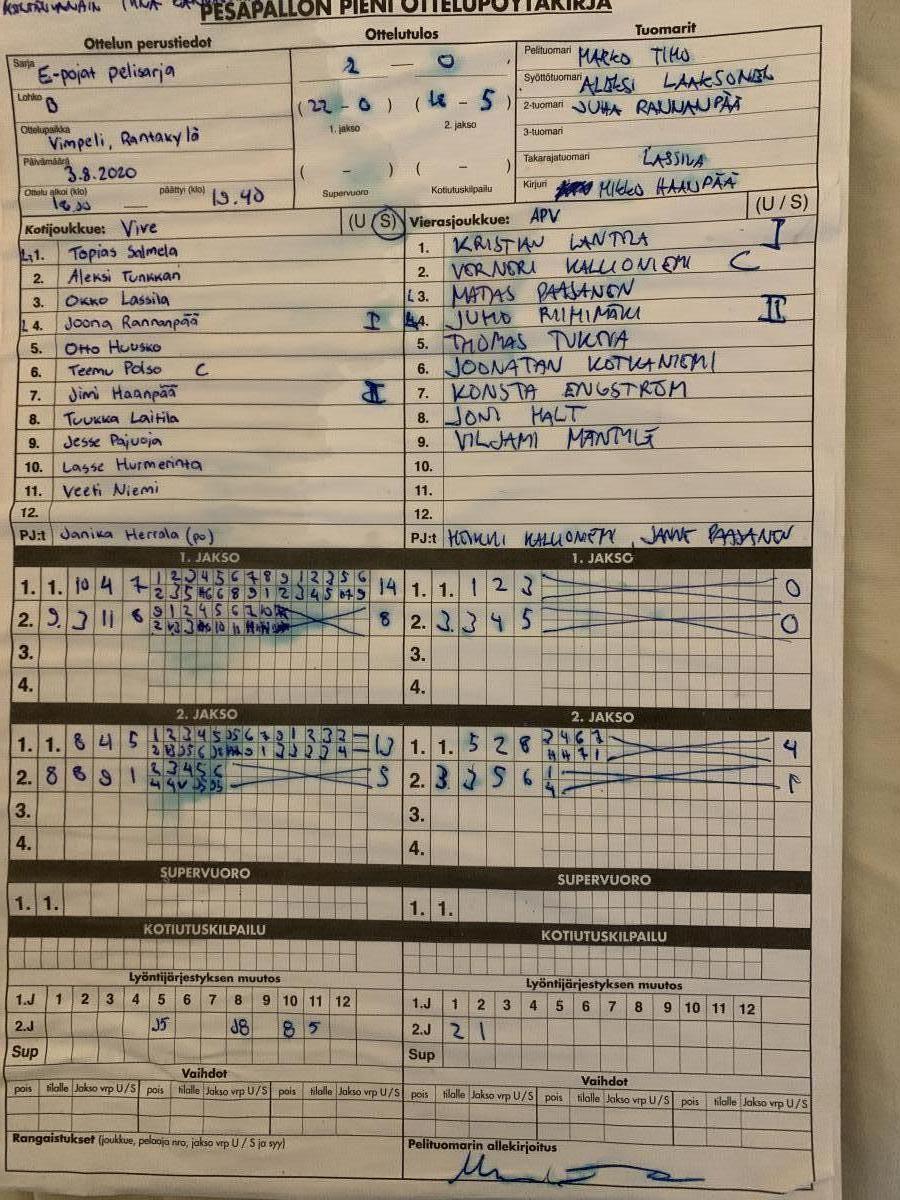 PESÄPALLON PIENI OTTELUPÖYTÄKIRJA
Ottelun perustiedot
Ottelutulos
Tuomarit
Sarja E-pojat pelisarja
Lohko B
Ottelupaikka Vimpeli, Rantakylä
Päivämäärä 3.8.2020
Ottelu alkoi (klo) 18.00 päättyi (klo) 19.40
2 — 0
(22 - 0) (18 - 5)
1. jakso 2. jakso
( - ) ( - )
Supervuoro Kotiutuskilpailu
Pelituomari MARKO TIMO
Syöttötuomari ALEKSI LAAKSONEN
2-tuomari JUHA RANNANPÄÄ
3-tuomari
Takarajatuomari LASSILA
Kirjuri MIKKO HAANPÄÄ
Kotijoukkue: Vive (U / S)
1. Topias Salmela
2. Aleksi Tunkkari
3. Okko Lassila
L 4. Joona Rannanpää I
5. Otto Huusko
6. Teemu Polso C
7. Jimi Haanpää II
8. Tuukka Laitila
9. Jesse Pajuoja
10. Lasse Hurmerinta
11. Veeti Niemi
12.
PJ:t Janika Herrala (po)
Vierasjoukkue: APV (U / S)
1. KRISTIAN LANTTA I
2. VERNERI KALLIONIEMI C
L 3. MATIAS PAASANEN
4. JUHO RIIHIMÄKI II
5. THOMAS TUKEVA
6. JOONATAN KOTKANIEMI
7. KONSTA ENGSTRÖM
8. JONI HALT
9. VILJAMI MÄNTYLÄ
10.
11.
12.
PJ:t KALLIONIEMI, JANNE PAASANEN
1. JAKSO
1. 1. 10 4 7 14
2. 9. 3 11 8 8
3.
4.
1. JAKSO
1. 1. 1 2 3 0
2. 3. 3 4 5 0
3.
4.
2. JAKSO
1. 1. 8 4 5 13
2. 8 8 9 1 5
3.
4.
2. JAKSO
1. 1. 5 2 8 4
2. 3. 3 5 6 1
3.
4.
SUPERVUORO
1. 1.
SUPERVUORO
1. 1.
KOTIUTUSKILPAILU
KOTIUTUSKILPAILU
Lyöntijärjestyksen muutos
1.J 1 2 3 4 5 6 7 8 9 10 11 12
2.J J5 J8 8 5
Sup
Lyöntijärjestyksen muutos
1.J 1 2 3 4 5 6 7 8 9 10 11 12
2.J 2 1
Sup
Vaihdot
pois tilalle Jakso vrp U / S pois tilalle Jakso vrp U / S pois tilalle Jakso vrp U / S
Vaihdot
pois tilalle Jakso vrp U / S pois tilalle Jakso vrp U / S pois tilalle Jakso vrp U / S
Rangaistukset (joukkue, pelaaja nro, jakso vrp U / S ja syy)
Pelituomarin allekirjoitus